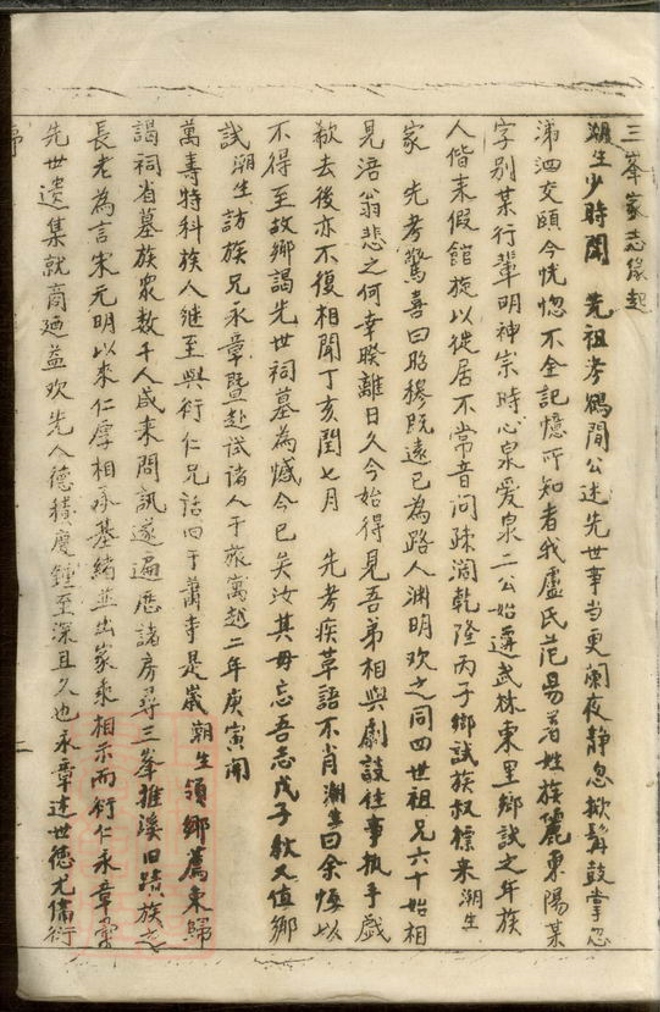 三峯家志緣起
潮生少時聞　先祖考鶴間公述先世事当更阑夜靜忽掀髯鼓掌忽
涕泗交頤今恍惚不全記憶所知者我盧氏范易著姓族麗東陽某
字別某行輩明神宗時心泉爱泉二公始遷武林東里鄉試之年族
人偕来假館旋以徙居不常音问疎濶乾隆丙子鄉試族叔標来潮生
家　先考驚喜曰昭穆既遠已為路人渊明欢之同四世祖兄六十始相
見涪翁悲之何幸暌離日久今始得見吾弟相與劇談往事执手戯
欷去後亦不復相聞丁亥閏七月　先考疾革語不肖潮生曰余恨以
不得至故鄉謁先世祠墓為憾今已矣汝其毋忘吾志戊子秋又值鄉
試潮生訪族兄永章暨赴试诸人于旅寓越二年庚寅開
萬壽特科族人继至與衍仁兄話旧于蕭寺是歲潮生領鄉薦東歸
謁祠省墓族衆数千人咸来問訊遂遍歷諸房尋三峯雅溪旧蹟族之
長老為言宋元明以来仁厚相承基緒並出家乘相示而衍仁永章彙
先世遗集就商廼益欢先人德積慶鍾至深且久也永章述世德尤備衍
序
二